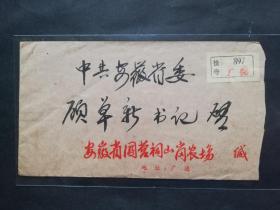 中共安徽省委
顾卓新书记 启
安徽省国营祠山岗农场 缄
地址：广德
891